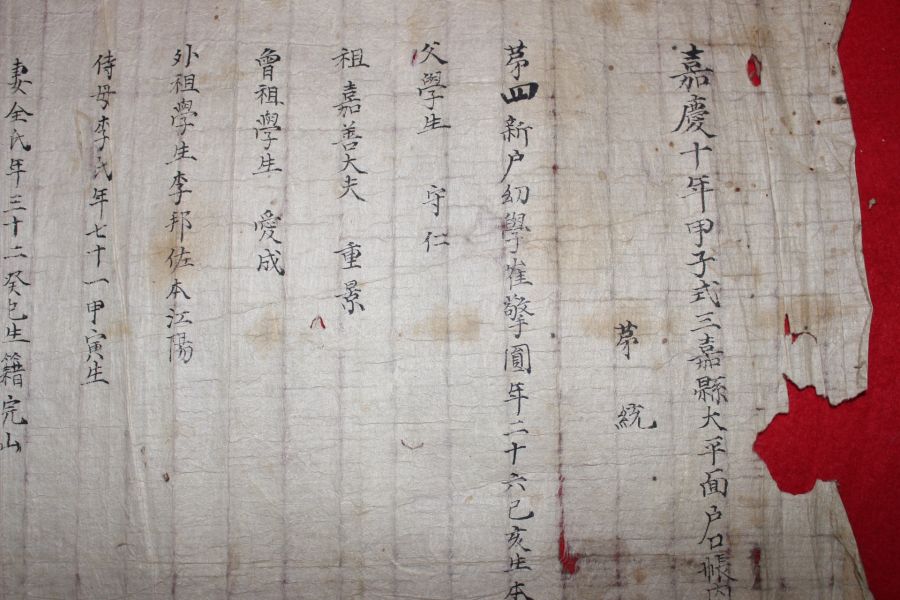 嘉慶十年甲子式三嘉縣大平面户口帳内
苐 統
苐四新户幼學崔擎圓年二十六己亥生本
父學生 守仁
祖嘉善大夫 重景
曾祖學生 愛成
外祖學生李邦佐本江陽
侍母李氏年七十一甲寅生
妻全氏年三十二癸巳生籍完山